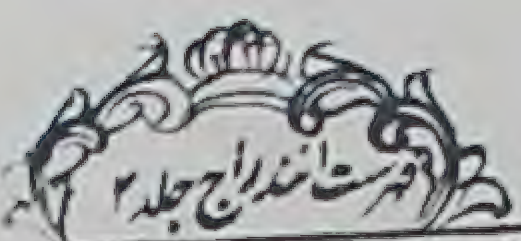 فهرست انندراج جلد ۲